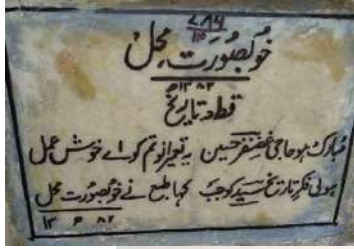 ۷۸۶
۱۱۰
خوبصورت محل
۱۳۸۲ھ
قطعہ تاریخ
مبارک ہو حاجی غضنفر حسین یہ تعمیر نو تم کو اے خوش عمل
ہوئی فکر تاریخ سید کو جب کہا طبع نے خوبصورت محل
۱۳۸۲